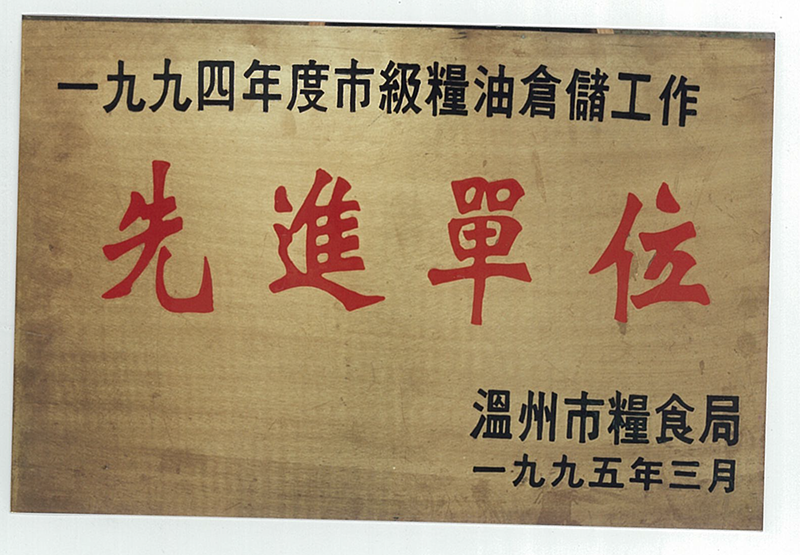 一九九四年度市級糧油倉儲工作
先進單位
溫州市糧食局
一九九五年三月